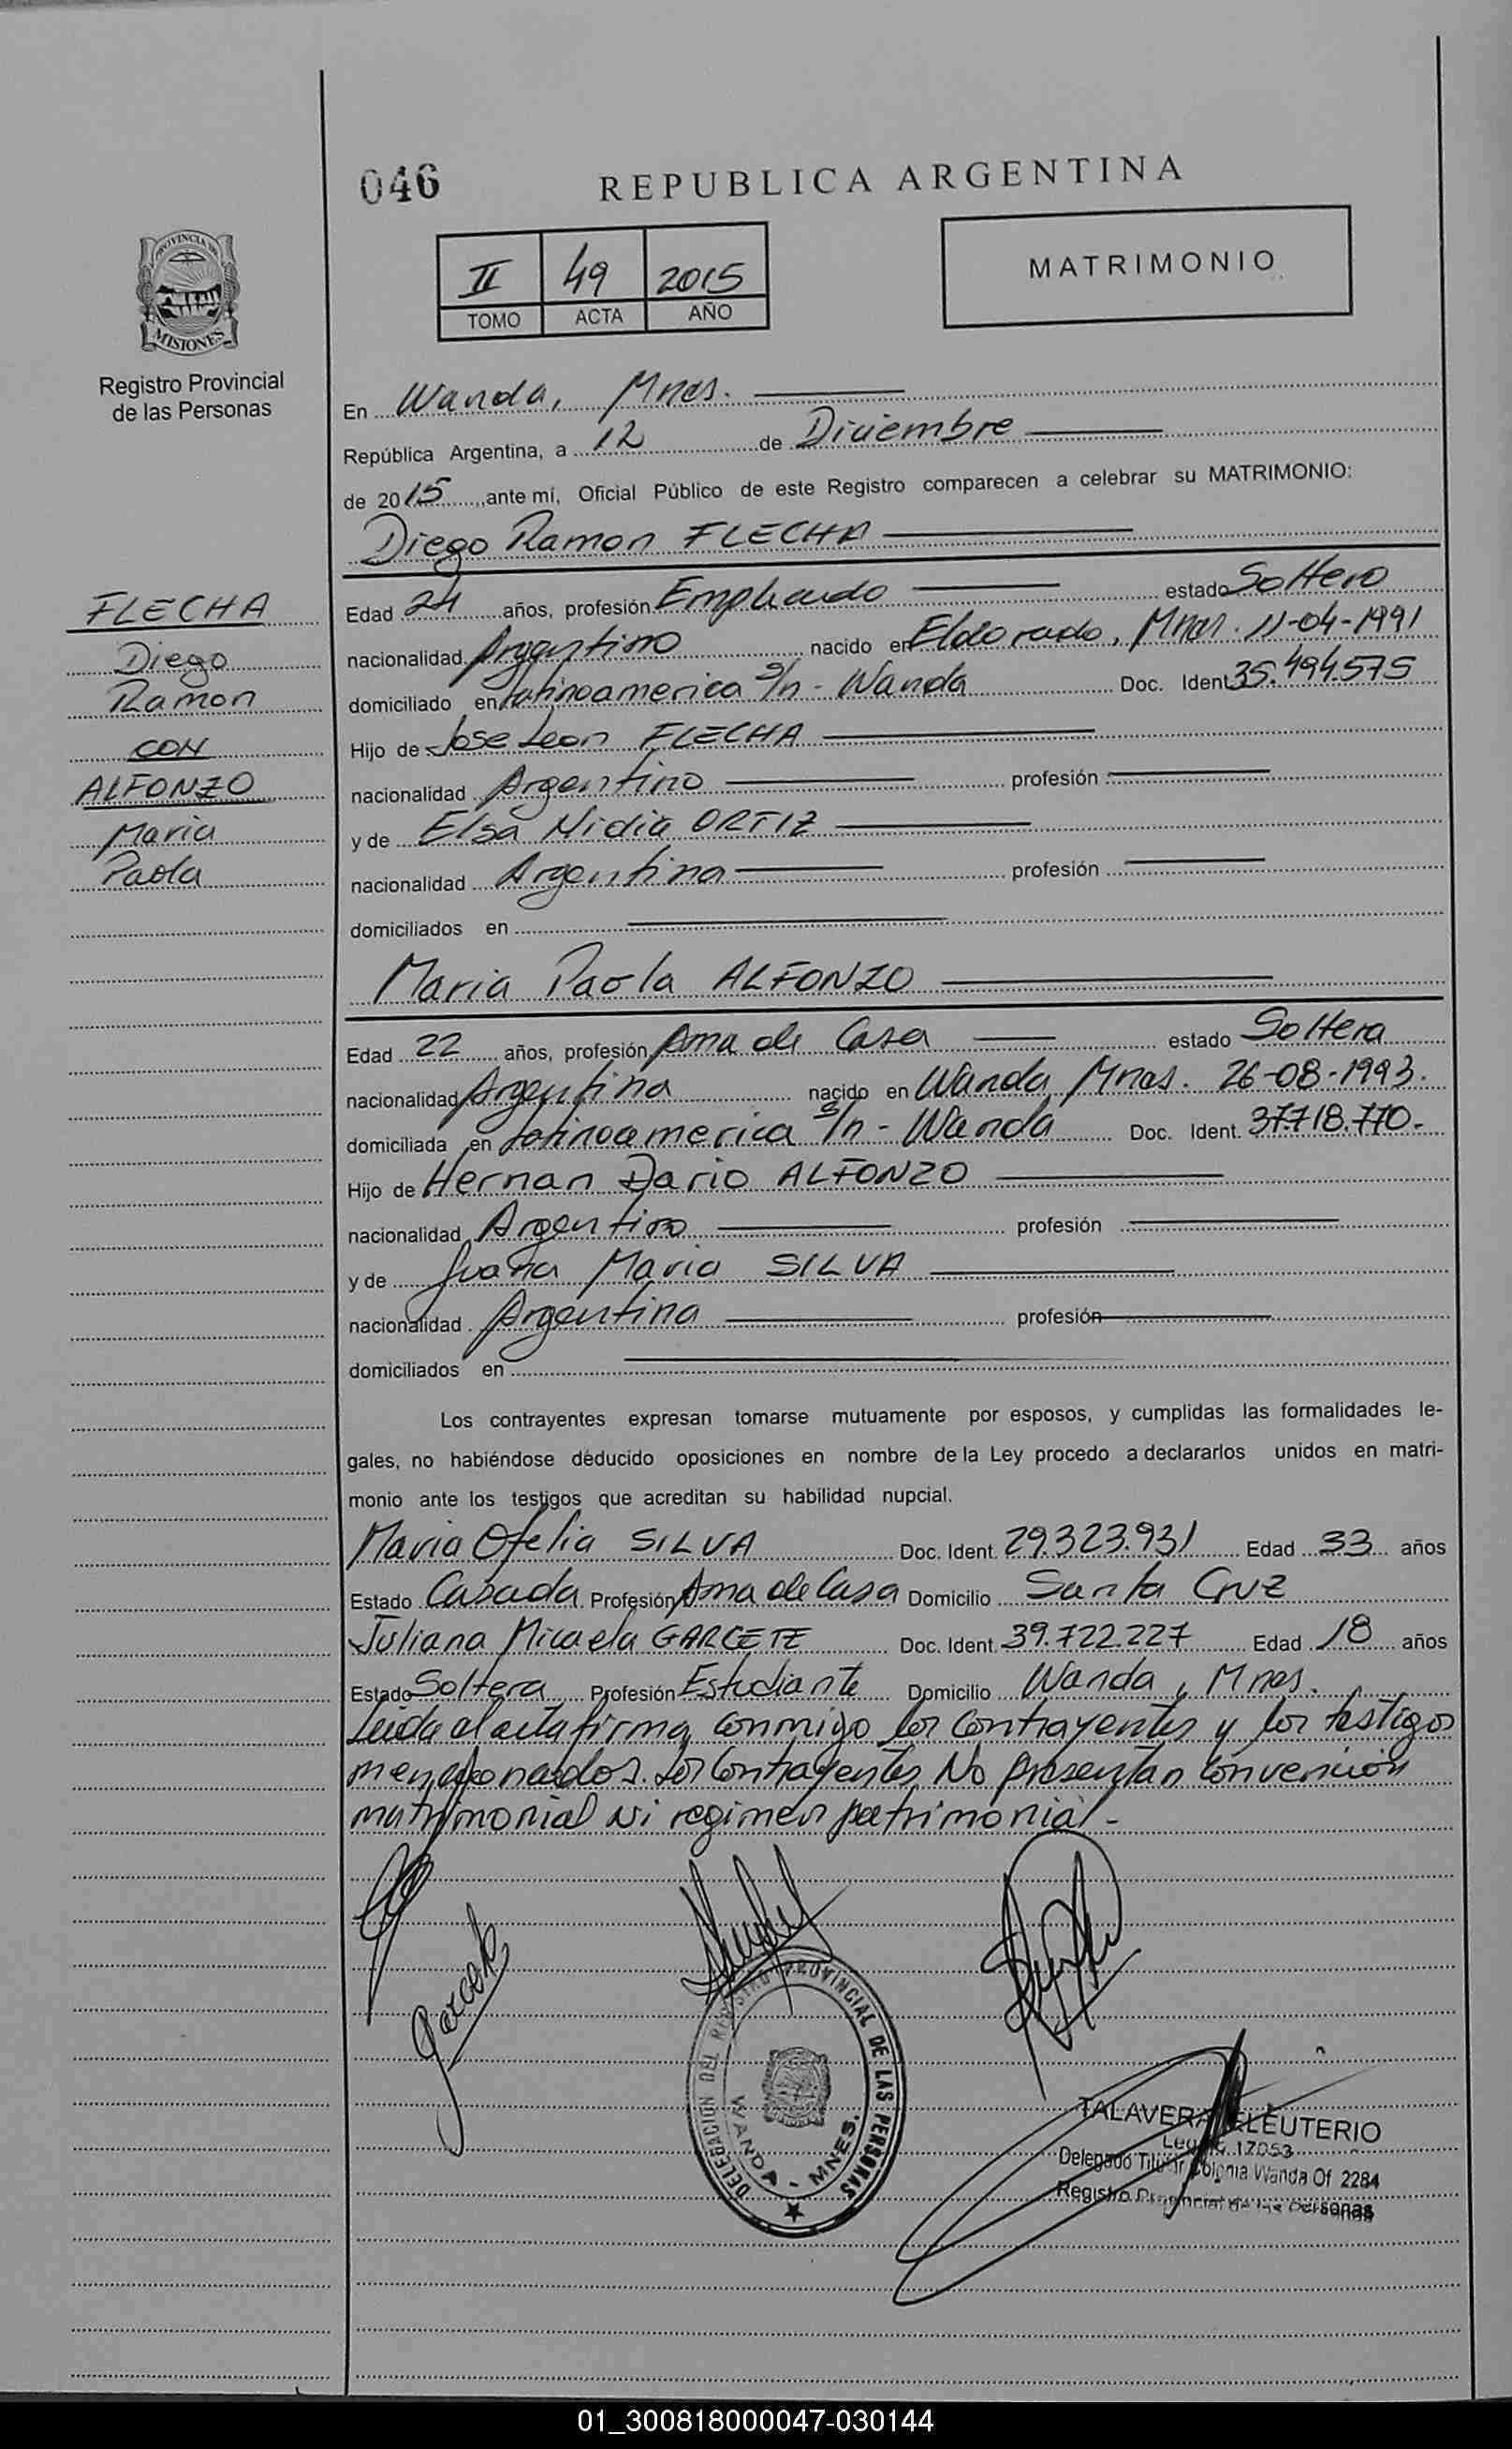 046
REPUBLICA ARGENTINA
PROVINCIA DE
MISIONES
Registro Provincial
de las Personas
II 49 2015
TOMO ACTA AÑO
MATRIMONIO
En Wanda, Mnes.
República Argentina, a 12 de Diciembre
de 2015, ante mí, Oficial Público de este Registro comparecen a celebrar su MATRIMONIO:
Diego Ramon FLECHA
FLECHA
Diego
Ramon
CON
ALFONZO
Maria
Paola
Edad 24 años, profesión Empleado estado Soltero
nacionalidad Argentino nacido en Eldorado, Mnes. 11-04-1991
domiciliado en Latinoamerica s/n - Wanda Doc. Ident. 35.494.575
Hijo de Jose Leon FLECHA
nacionalidad Argentino profesión
y de Elsa Nidia ORTIZ
nacionalidad Argentina profesión
domiciliados en
Maria Paola ALFONZO
Edad 22 años, profesión Ama de Casa estado Soltera
nacionalidad Argentina nacido en Wanda, Mnes. 26-08-1993.
domiciliada en Latinoamerica s/n - Wanda Doc. Ident. 37.718.770.-
Hijo de Hernan Dario ALFONZO
nacionalidad Argentino profesión
y de Juana Maria SILVA
nacionalidad Argentina profesión
domiciliados en
Los contrayentes expresan tomarse mutuamente por esposos, y cumplidas las formalidades le-
gales, no habiéndose deducido oposiciones en nombre de la Ley procedo a declararlos unidos en matri-
monio ante los testigos que acreditan su habilidad nupcial.
Maria Ofelia SILVA Doc. Ident. 29.323.931 Edad 33 años
Estado Casada Profesión Ama de Casa Domicilio Santa Cruz
Juliana Micaela GARCETE Doc. Ident. 39.722.227 Edad 18 años
Estado Soltera Profesión Estudiante Domicilio Wanda, Mnes.
Leida el acta firman conmigo los contrayentes y los testigos
mencionados. Los Contrayentes No presentan convención
matrimonial Ni regimen patrimonial.-
Garcete
DELEGACION DEL REGISTRO PROVINCIAL DE LAS PERSONAS
WANDA - MNES.
TALAVERA ELEUTERIO
17053
Delegado Titular Colonia Wanda Of 2284
Registro Provincial de las Personas
01_300818000047-030144